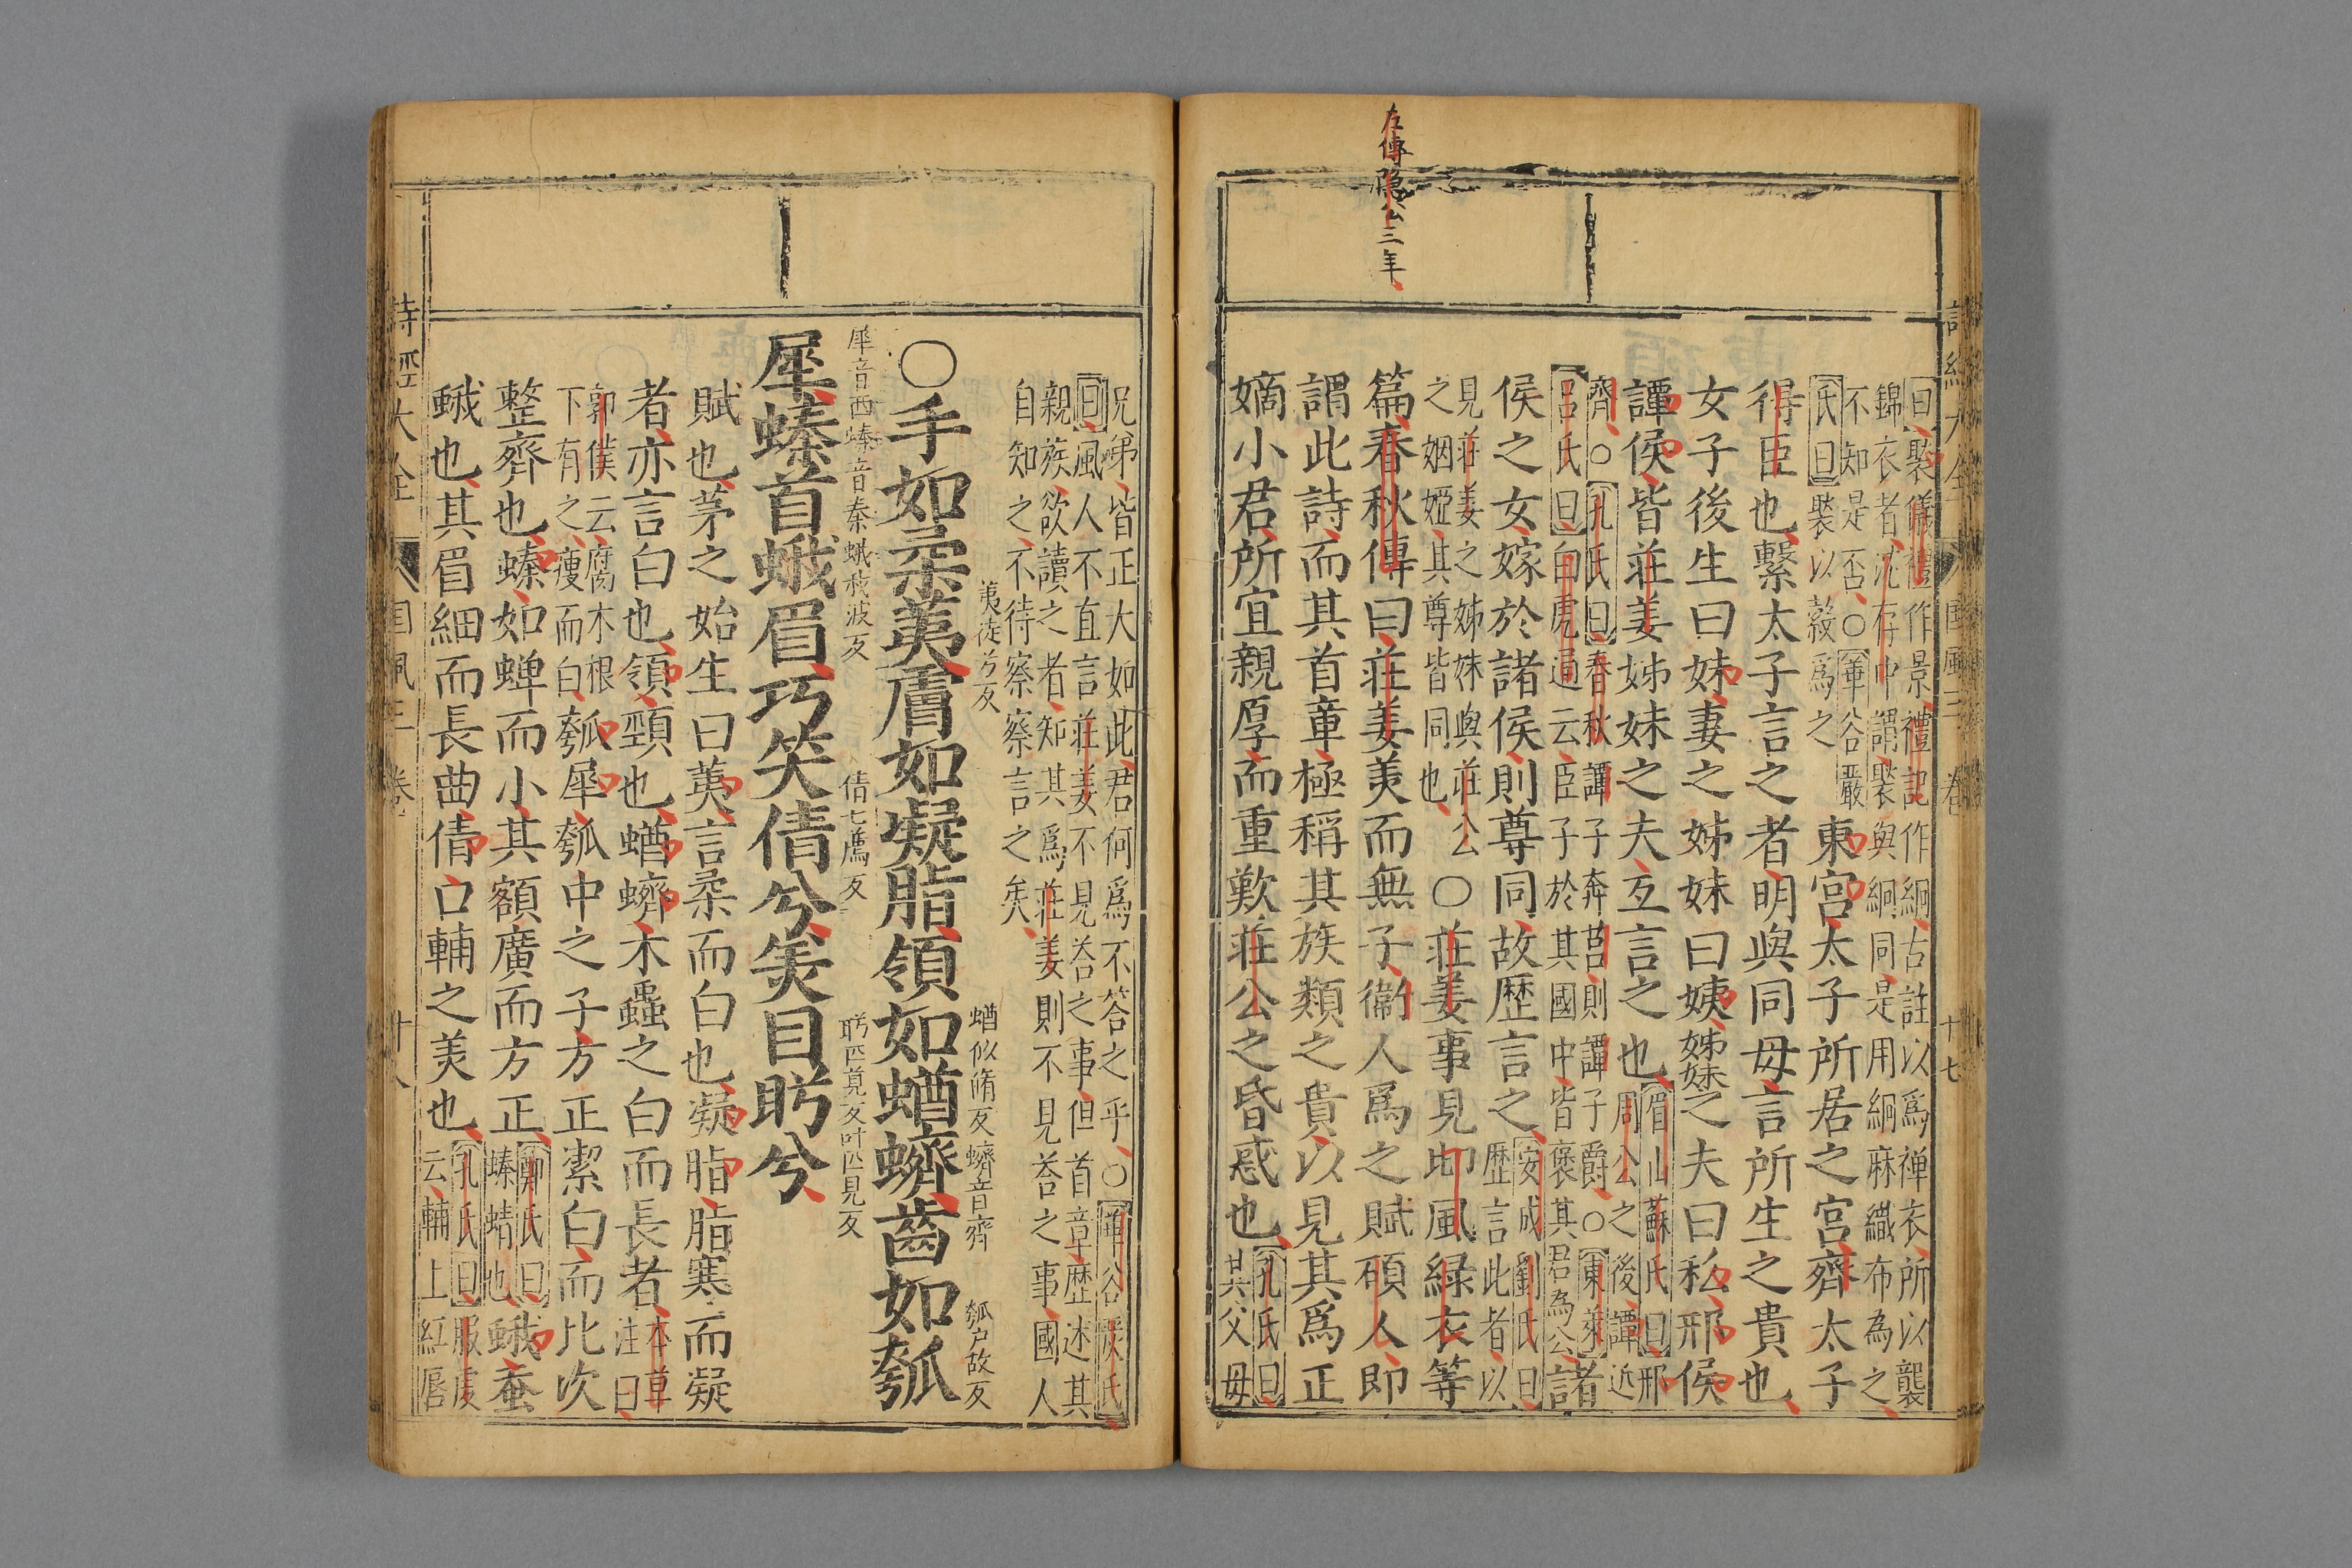 左傳隱公三年
曰褧儀禮作景禮記作絅古註以爲襌衣所以襲
錦衣者沈存中謂褧與絅同是用絅麻織布為之
不知是否○華谷嚴
氏曰褧以縠爲之
東宮太子所居之宮齊太子
得臣也繫太子言之者明與同母言所生之貴也
女子後生曰妹妻之姊妹曰姨姊妹之夫曰私邢侯
譚侯皆莊姜姊妹之夫互言之也
眉山蘇氏曰邢
周公之後譚近
齊○孔氏曰春秋譚子奔莒則譚子爵○東萊
呂氏曰白虎通云臣子於其國中皆褒其君為公
諸
侯之女嫁於諸侯則尊同故歷言之
安成劉氏曰
歷言此者以
見莊姜之姊妹與莊公
之姻婭其尊皆同也
○莊姜事見邶風綠衣等
篇春秋傳曰莊姜美而無子衛人爲之賦碩人即
謂此詩而其首章極稱其族類之貴以見其爲正
嫡小君所宜親厚而重歎莊公之昏惑也
孔氏曰
其父母
詩經大全 國風三 卷 十七
兄弟皆正大如此君何爲不荅之乎○華谷嚴氏
曰風人不直言莊姜不見荅之事但首章歷述其
親族欲讀之者知其爲莊姜則不見荅之事國人
自知之不待察察言之矣
○手如柔荑膚如凝脂領如蝤蠐齒如瓠
荑徒兮反
蝤似脩反蠐音齊
瓠户故反
犀螓首蛾眉巧笑倩兮美目盻兮
犀音西螓音秦蛾我波反
倩七薦反
盻匹莧反叶匹見反
賦也茅之始生曰荑言柔而白也凝脂脂寒而凝
者亦言白也領頸也蝤蠐木蟲之白而長者
本草
注曰
郭僕云腐木根
下有之瘦而白
瓠犀瓠中之子方正潔白而比次
整齊也螓如蟬而小其額廣而方正
鄭氏曰
螓蜻也
蛾蚕
蛾也其眉細而長曲倩口輔之美也
孔氏曰服虔
云輔上紅唇
詩經大全 國風三 卷 十八